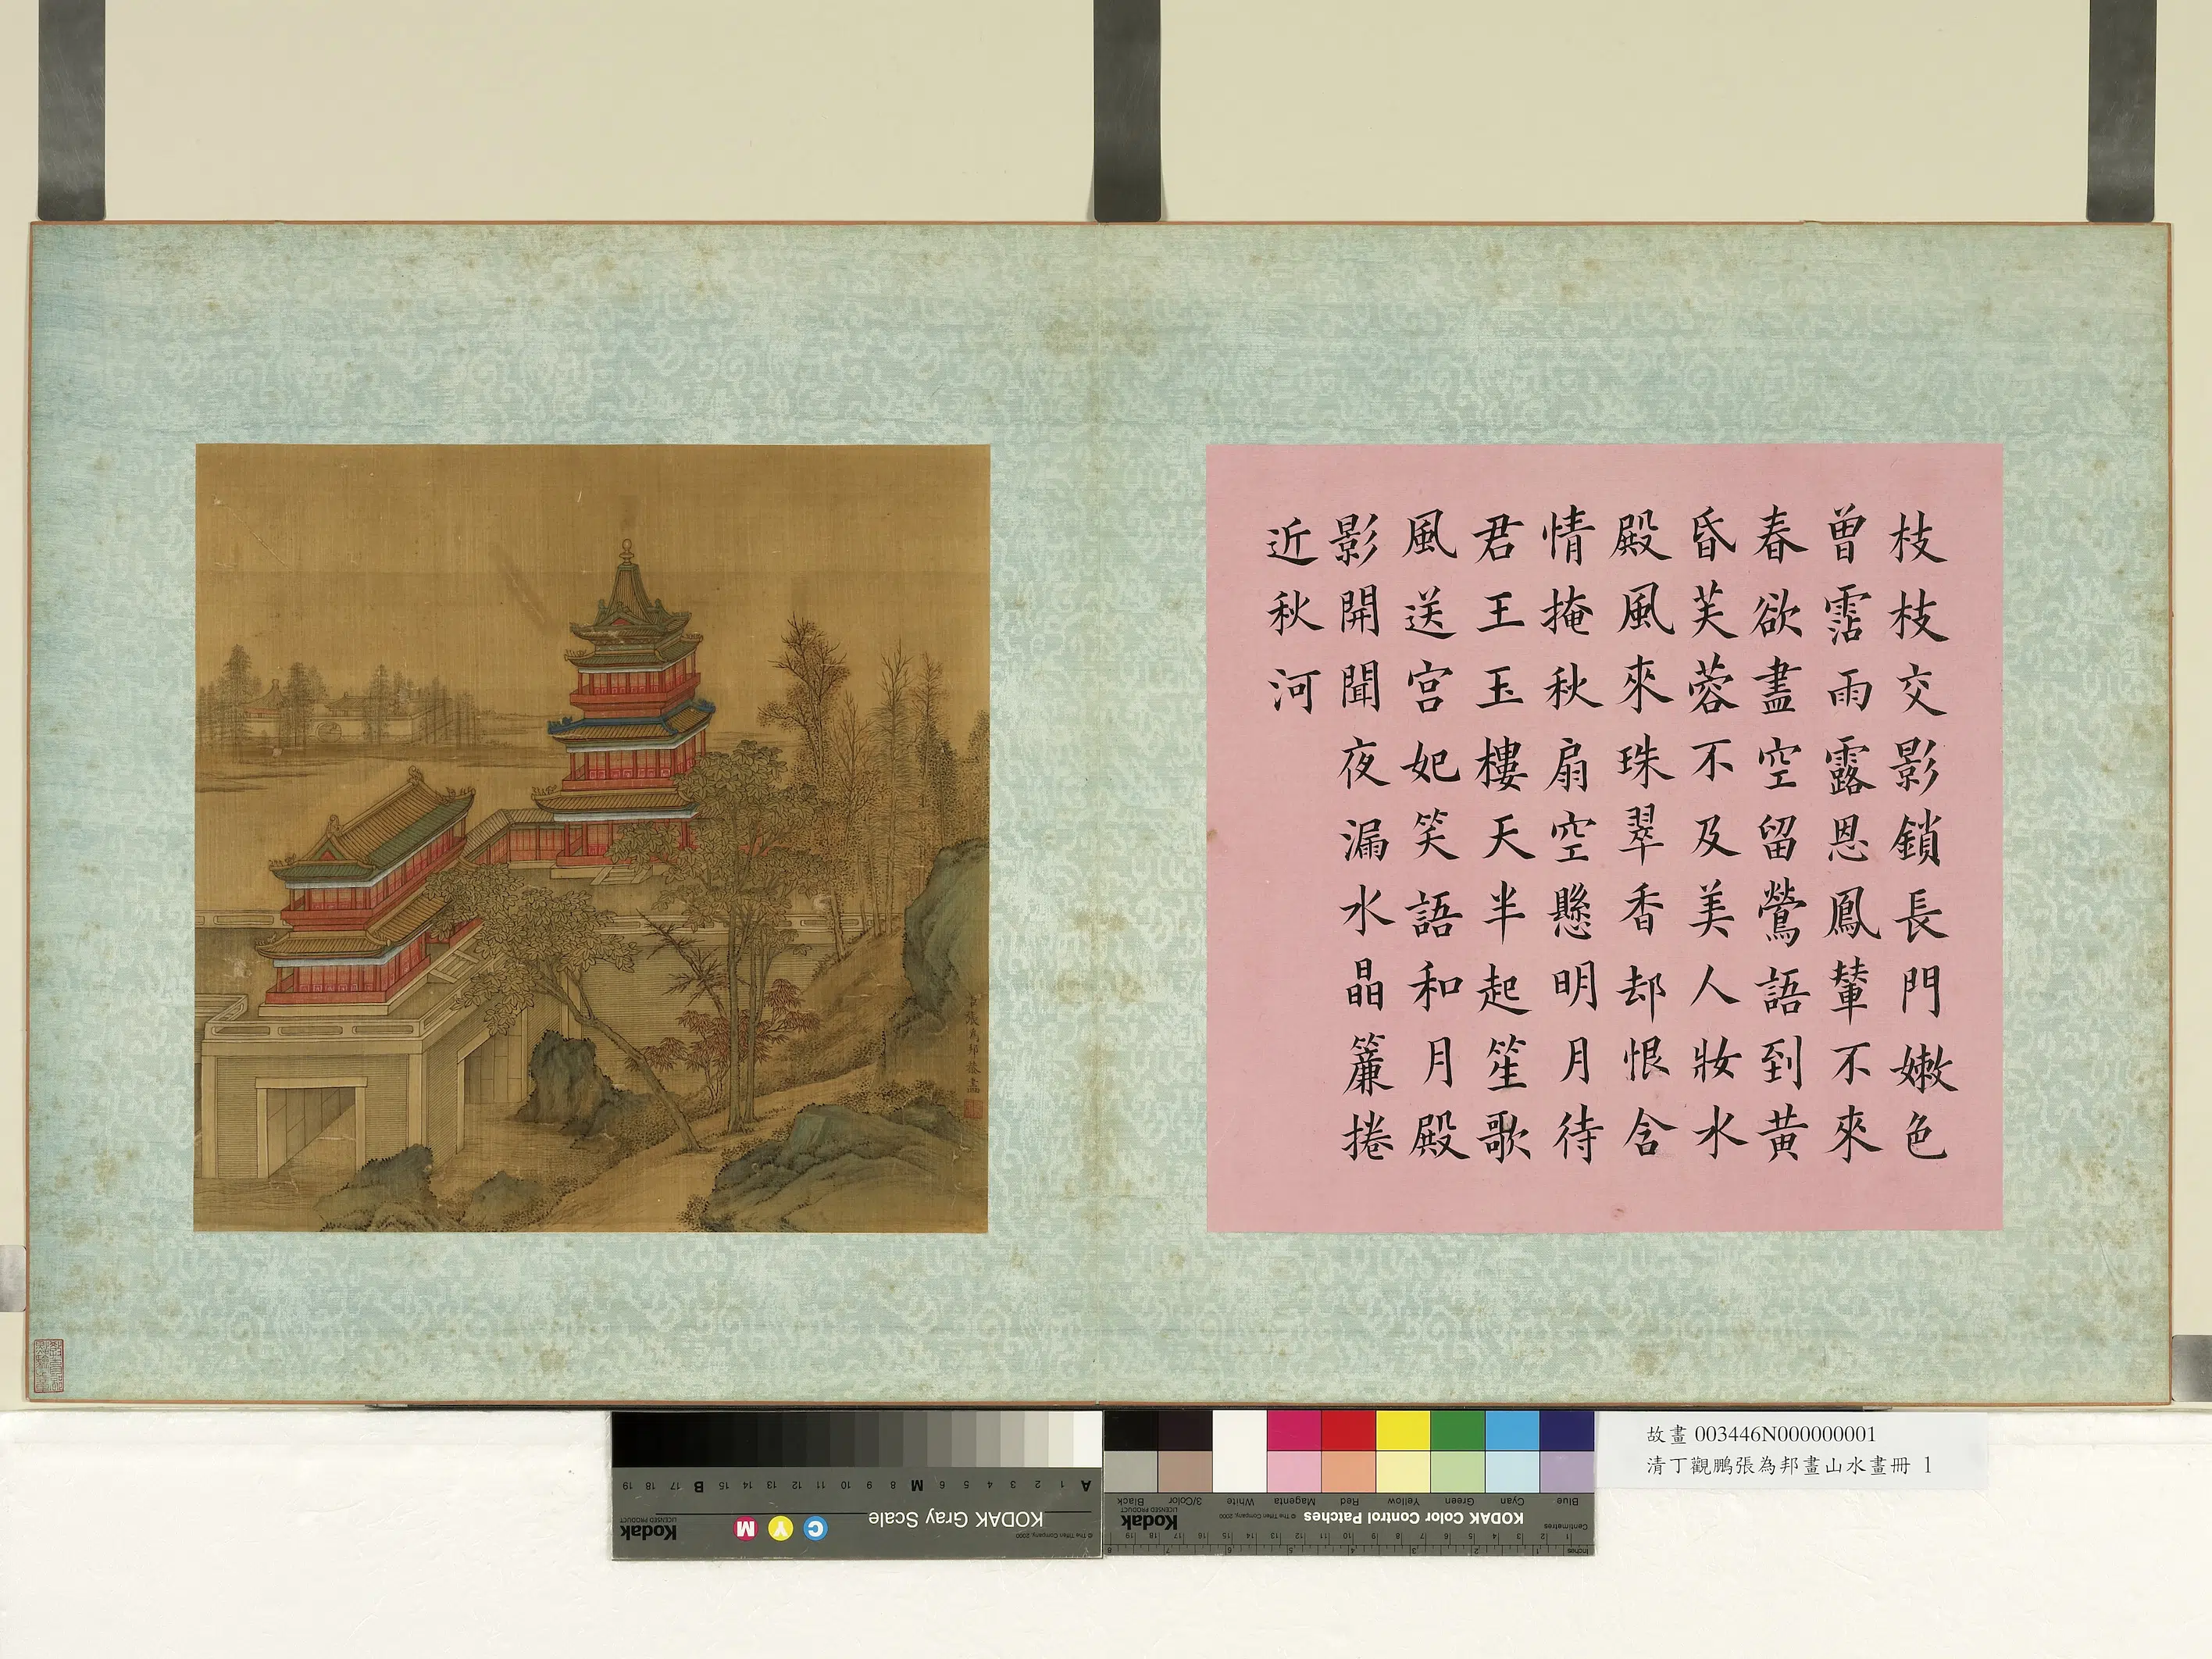 枝枝交影鎖長門嫩色
曾霑雨露恩鳳輦不來
春欲盡空留鶯語到黃
昏芙蓉不及美人妝水
殿風來珠翠香却恨含
情掩秋扇空懸明月待
君王玉樓天半起笙歌
風送宮妃笑語和月殿
影開聞夜漏水晶簾捲
近秋河
臣張為邦恭畫
故畫 003446N000000001
清丁觀鵬張為邦畫山水畫冊 1
KODAK Gray Scale
© The Tiffen Company, 2000
Kodak
LICENSED PRODUCT
C Y M
A 1 2 3 4 5 6 M 8 9 10 11 12 13 14 15 B 17 18 19
KODAK Color Control Patches
© The Tiffen Company, 2000
Kodak
LICENSED PRODUCT
Blue Cyan Green Yellow Red Magenta White 3/Color Black
Centimetres
Inches